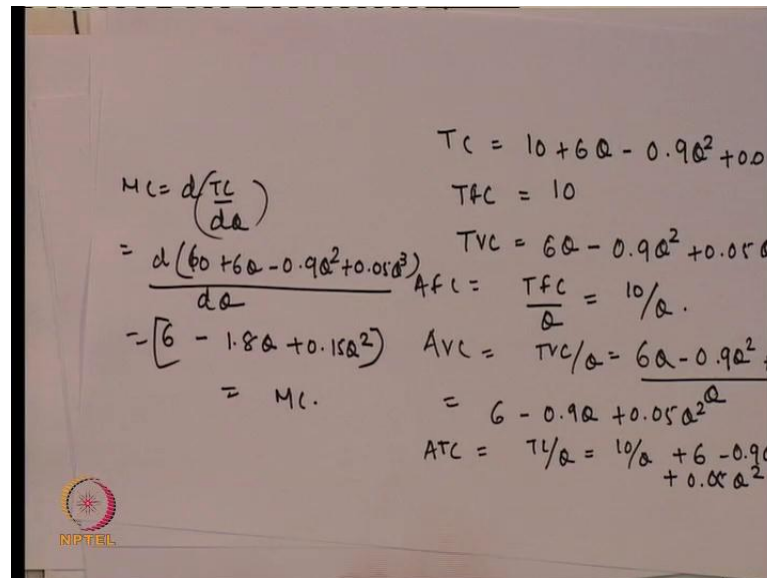 TC = 10 + 6Q - 0.9Q² + 0.0
TFC = 10
TVC = 6Q - 0.9Q² + 0.05Q
AFC = TFC/Q = 10/Q.
AVC = TVC/Q = 6Q - 0.9Q² + / Q
= 6 - 0.9Q + 0.05Q²
ATC = TC/Q = 10/Q + 6 - 0.9Q
+ 0.05Q²
MC = d(TC/dQ)
= d(60 + 6Q - 0.9Q² + 0.05Q³) / dQ
= [6 - 1.8Q + 0.15Q²)
= MC.
NPTEL